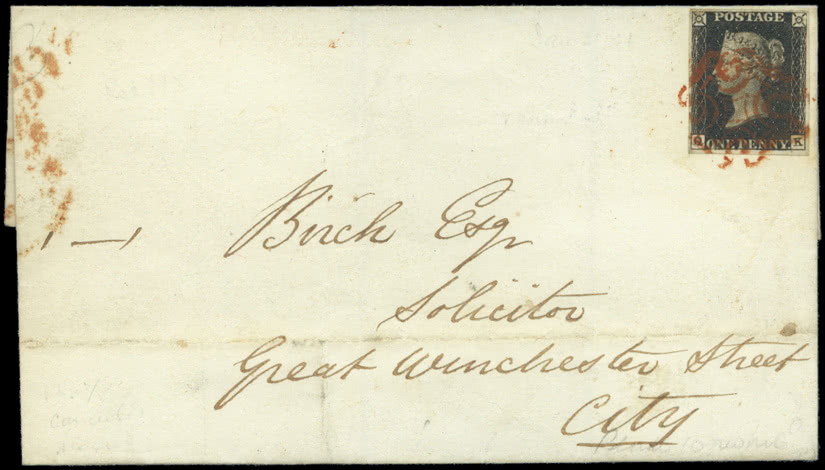 POSTAGE
ONE PENNY.
K
Birch Esqr
Solicitor
Great Winchester Street
City